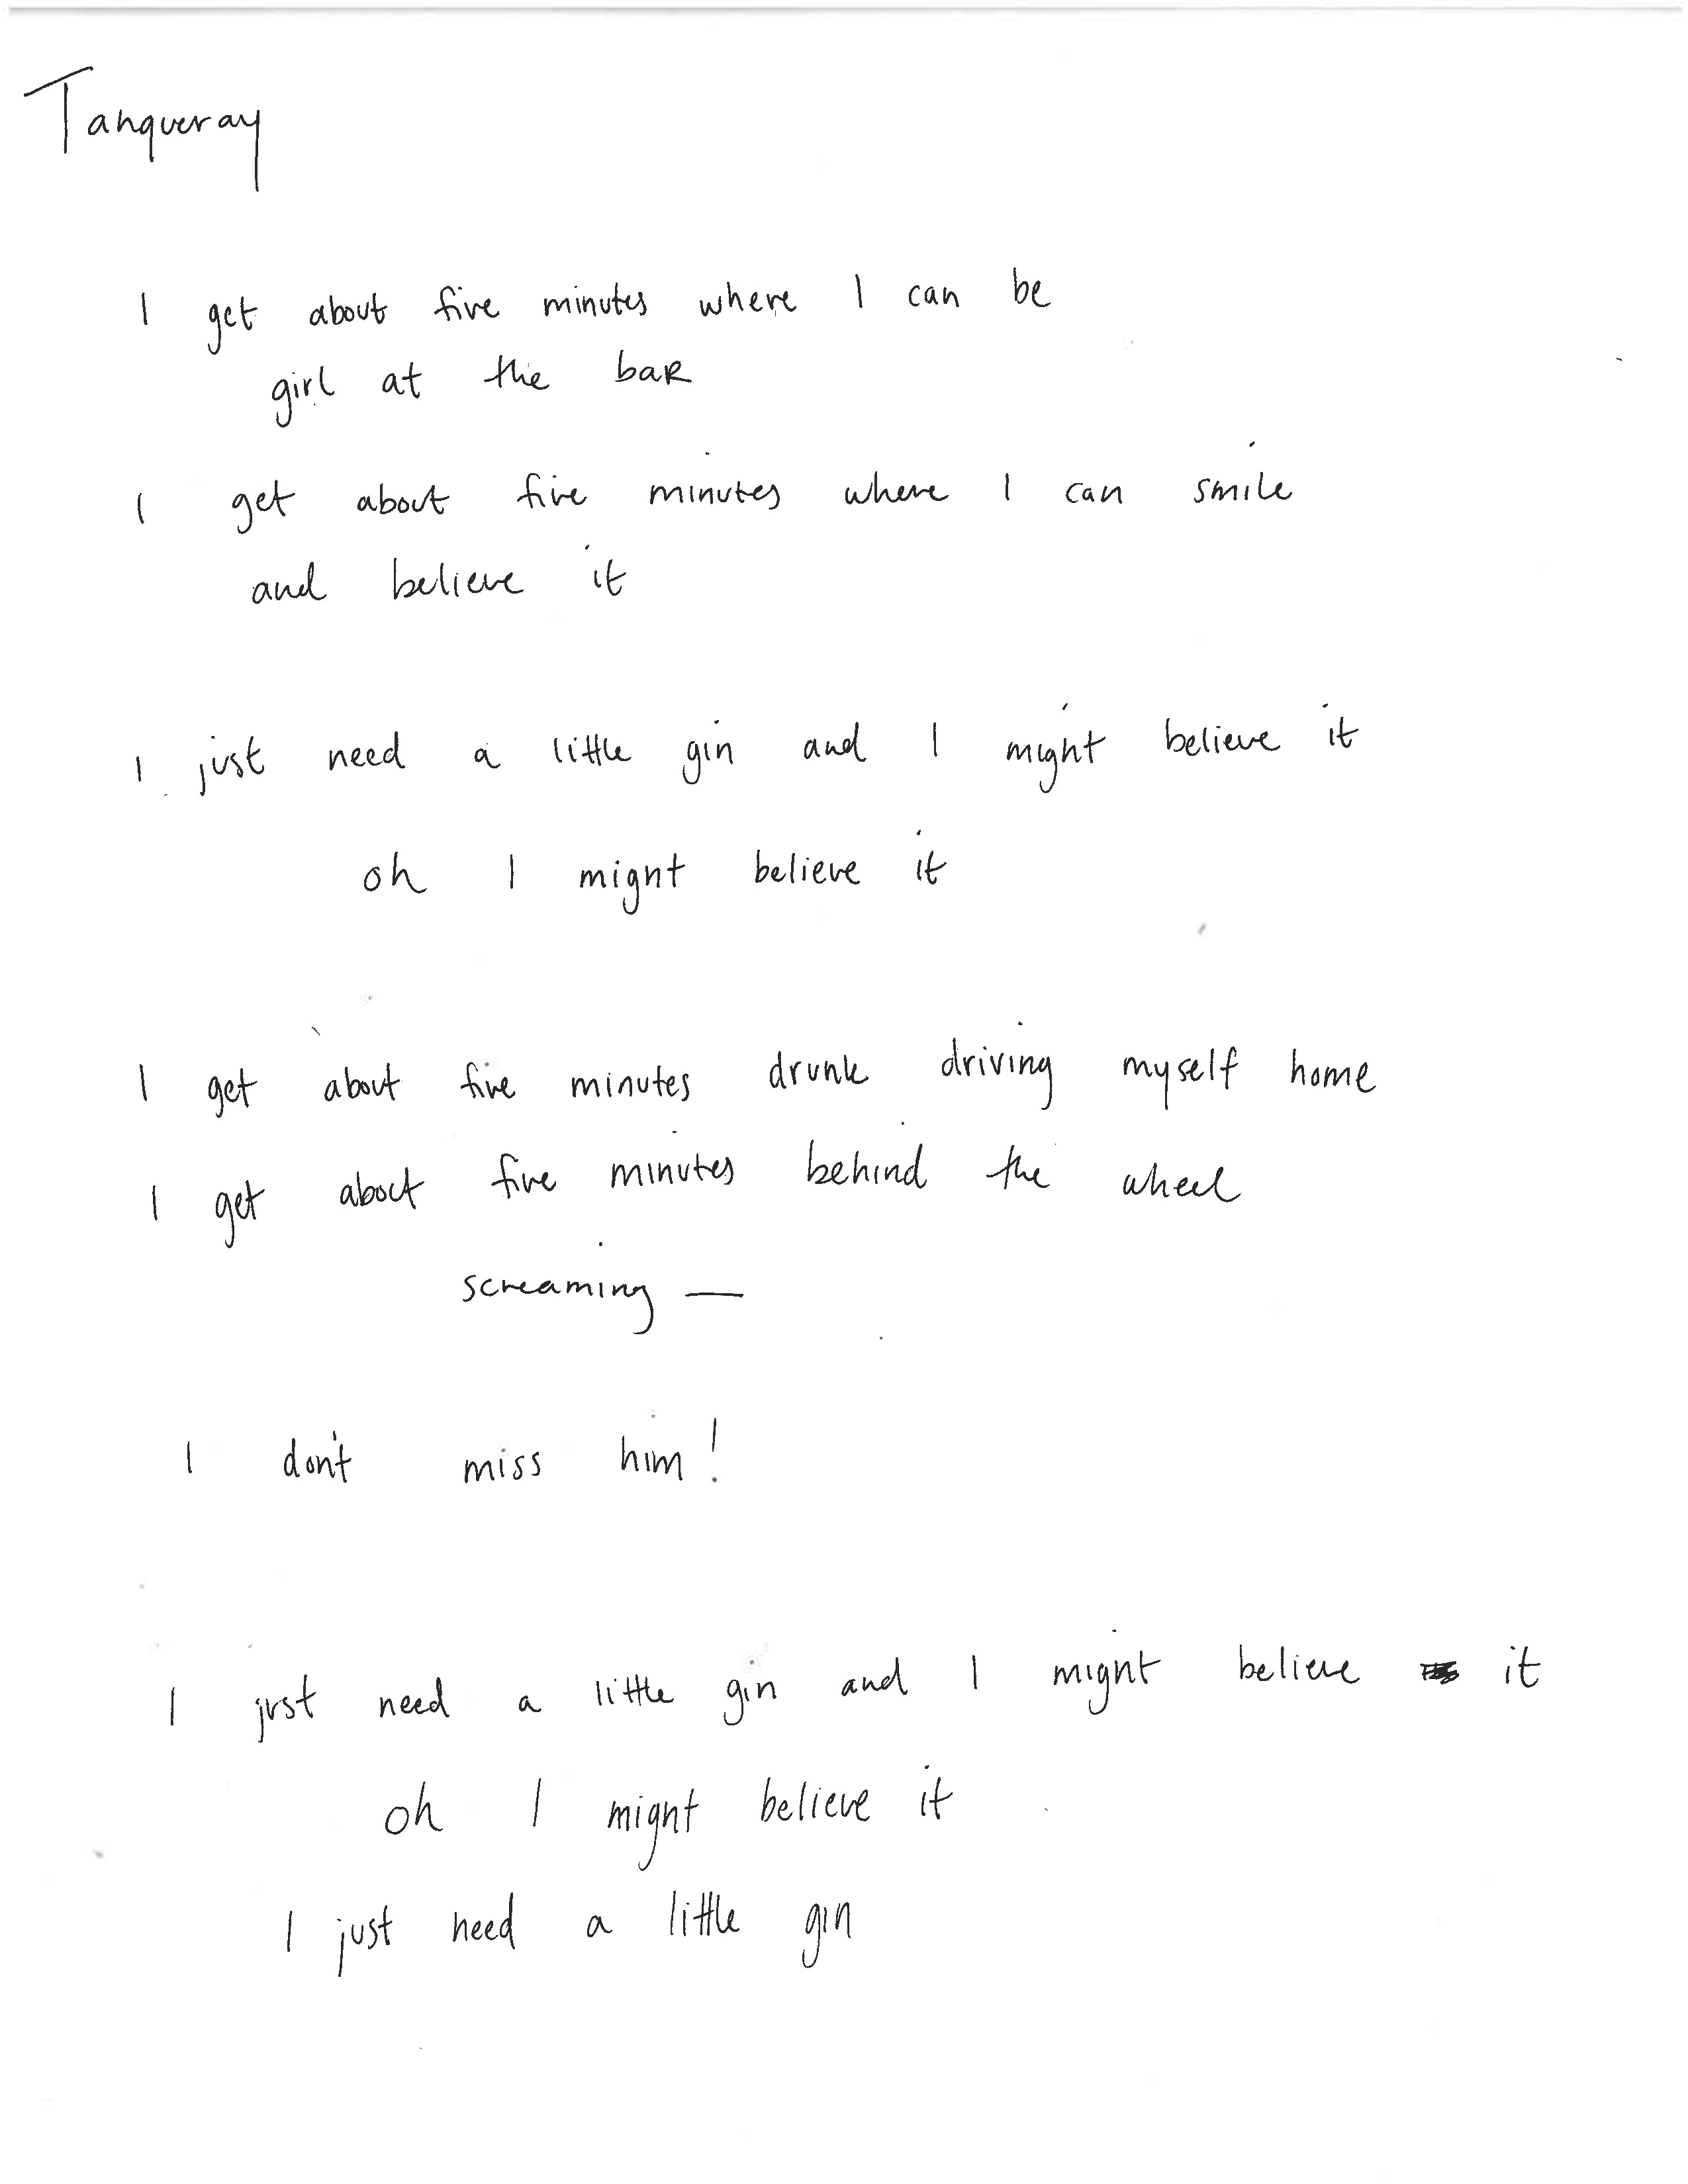 Tanqueray
I get about five minutes where I can be
girl at the bar
I get about five minutes where I can smile
and believe it
I just need a little gin and I might believe it
oh I might believe it
I get about five minutes drunk driving myself home
I get about five minutes behind the wheel
screaming —
I don't miss him!
I just need a little gin and I might believe it
oh I might believe it
I just need a little gin